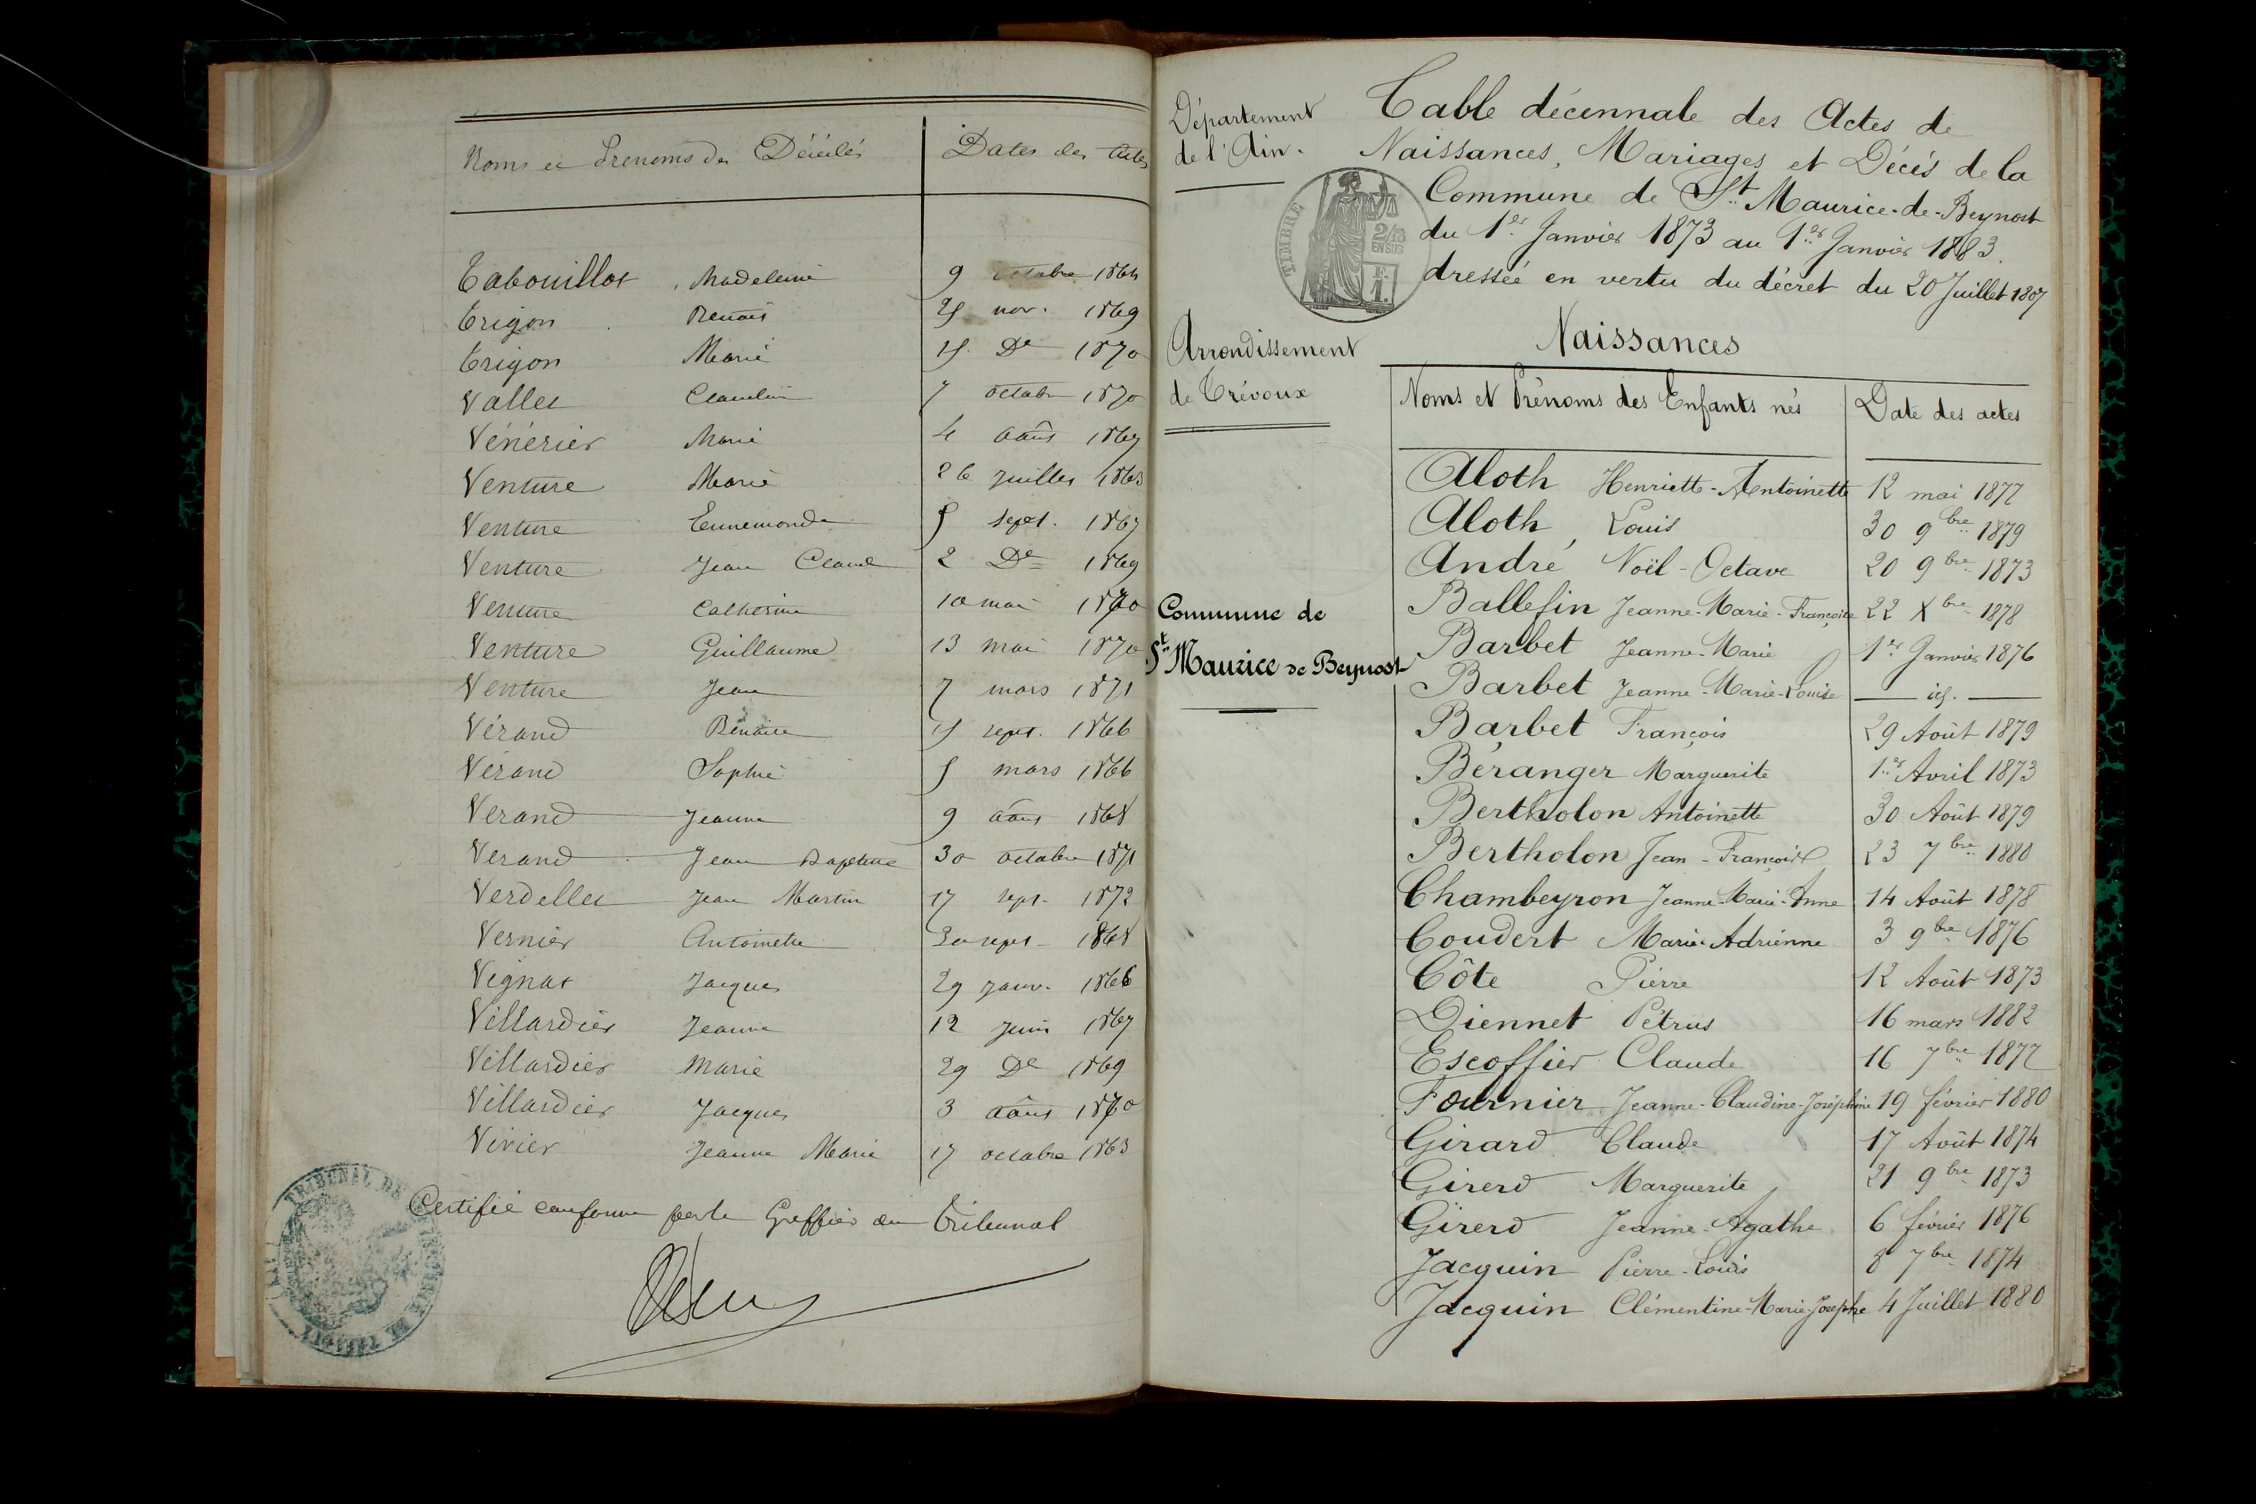 Noms et Prenoms des Décédés Dates des Actes
Tabouillot Madeleine 9 octobre 1864
Trigon Benoit 25 nov. 1869
Trigon Marie 15 De 1870
Vallet Claudine 7 octobre 1870
Vénérier Marie 4 août 1867
Venture Marie 26 juillet 1863
Venture Ennemonde 5 sept. 1867
Venture Jean Claude 2 De 1869
Venture Catherine 10 mai 1870
Venture Guillaume 13 mai 1870
Venture Jean 7 mars 1871
Vérand Benoite 15 sept. 1866
Vérand Sophie 5 mars 1866
Verand Jeanne 9 août 1868
Verand Jean Baptiste 30 octobre 1871
Verdellet Jean Martin 17 sept. 1872
Vernier Antoinette 30 sept. 1868
Vignat Jacques 29 janv. 1866
Villardier Jeanne 12 juin 1867
Villardier Marie 29 De 1869
Villardier Jacques 3 août 1870
Vivier Jeanne Marie 17 octobre 1863
Certifié conforme par le Greffier du Tribunal
TRIBUNAL DE
Département
de l'Ain.
Table décennale des Actes de
Naissances, Mariages et Décés de la
Commune de St. Maurice-de-Beynost
du 1er Janvier 1873 au 1er Janvier 1883.
dressée en vertu du décret du 20 Juillet 1807
TIMBRE
2/10
EN SUS
Arrondissement
de Trévoux
Commune de
St Maurice de Beynost
Naissances
Noms et Prénoms des Enfants nés Date des actes
Aloth Henriette-Antoinette 12 mai 1877
Aloth, Louis 30 9bre 1879
André Noël-Octave 20 9bre 1873
Ballefin Jeanne-Marie-Françoise 22 Xbre 1878
Barbet Jeanne-Marie 1er Janvier 1876
Barbet Jeanne-Marie-Louise — id. —
Barbet François 29 Août 1879
Béranger Marguerite 1er Avril 1873
Bertholon Antoinette 30 Août 1879
Bertholon Jean-François 23 7bre 1880
Chambeyron Jeanne-Marie-Anne 14 Août 1878
Coudert Marie-Adrienne 3 9bre 1876
Côte Pierre 12 Août 1873
Diennet Pétrus 16 mars 1882
Escoffier Claude 16 7bre 1877
Fournier Jeanne-Claudine-Joséphine 19 février 1880
Girard Claude 17 Août 1874
Girerd Marguerite 21 9bre 1873
Girerd Jeanne-Agathe 6 février 1876
Jacquin Pierre-Louis 8 7bre 1874
Jacquin Clémentine-Marie-Josephe 4 Juillet 1880